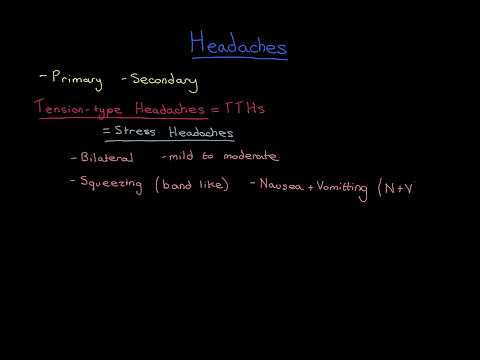 Headaches
- Primary - Secondary
Tension-type Headaches = TTHs
= Stress Headaches
- Bilateral - mild to moderate
- Squeezing (band like) - Nausea + Vomitting (N+V